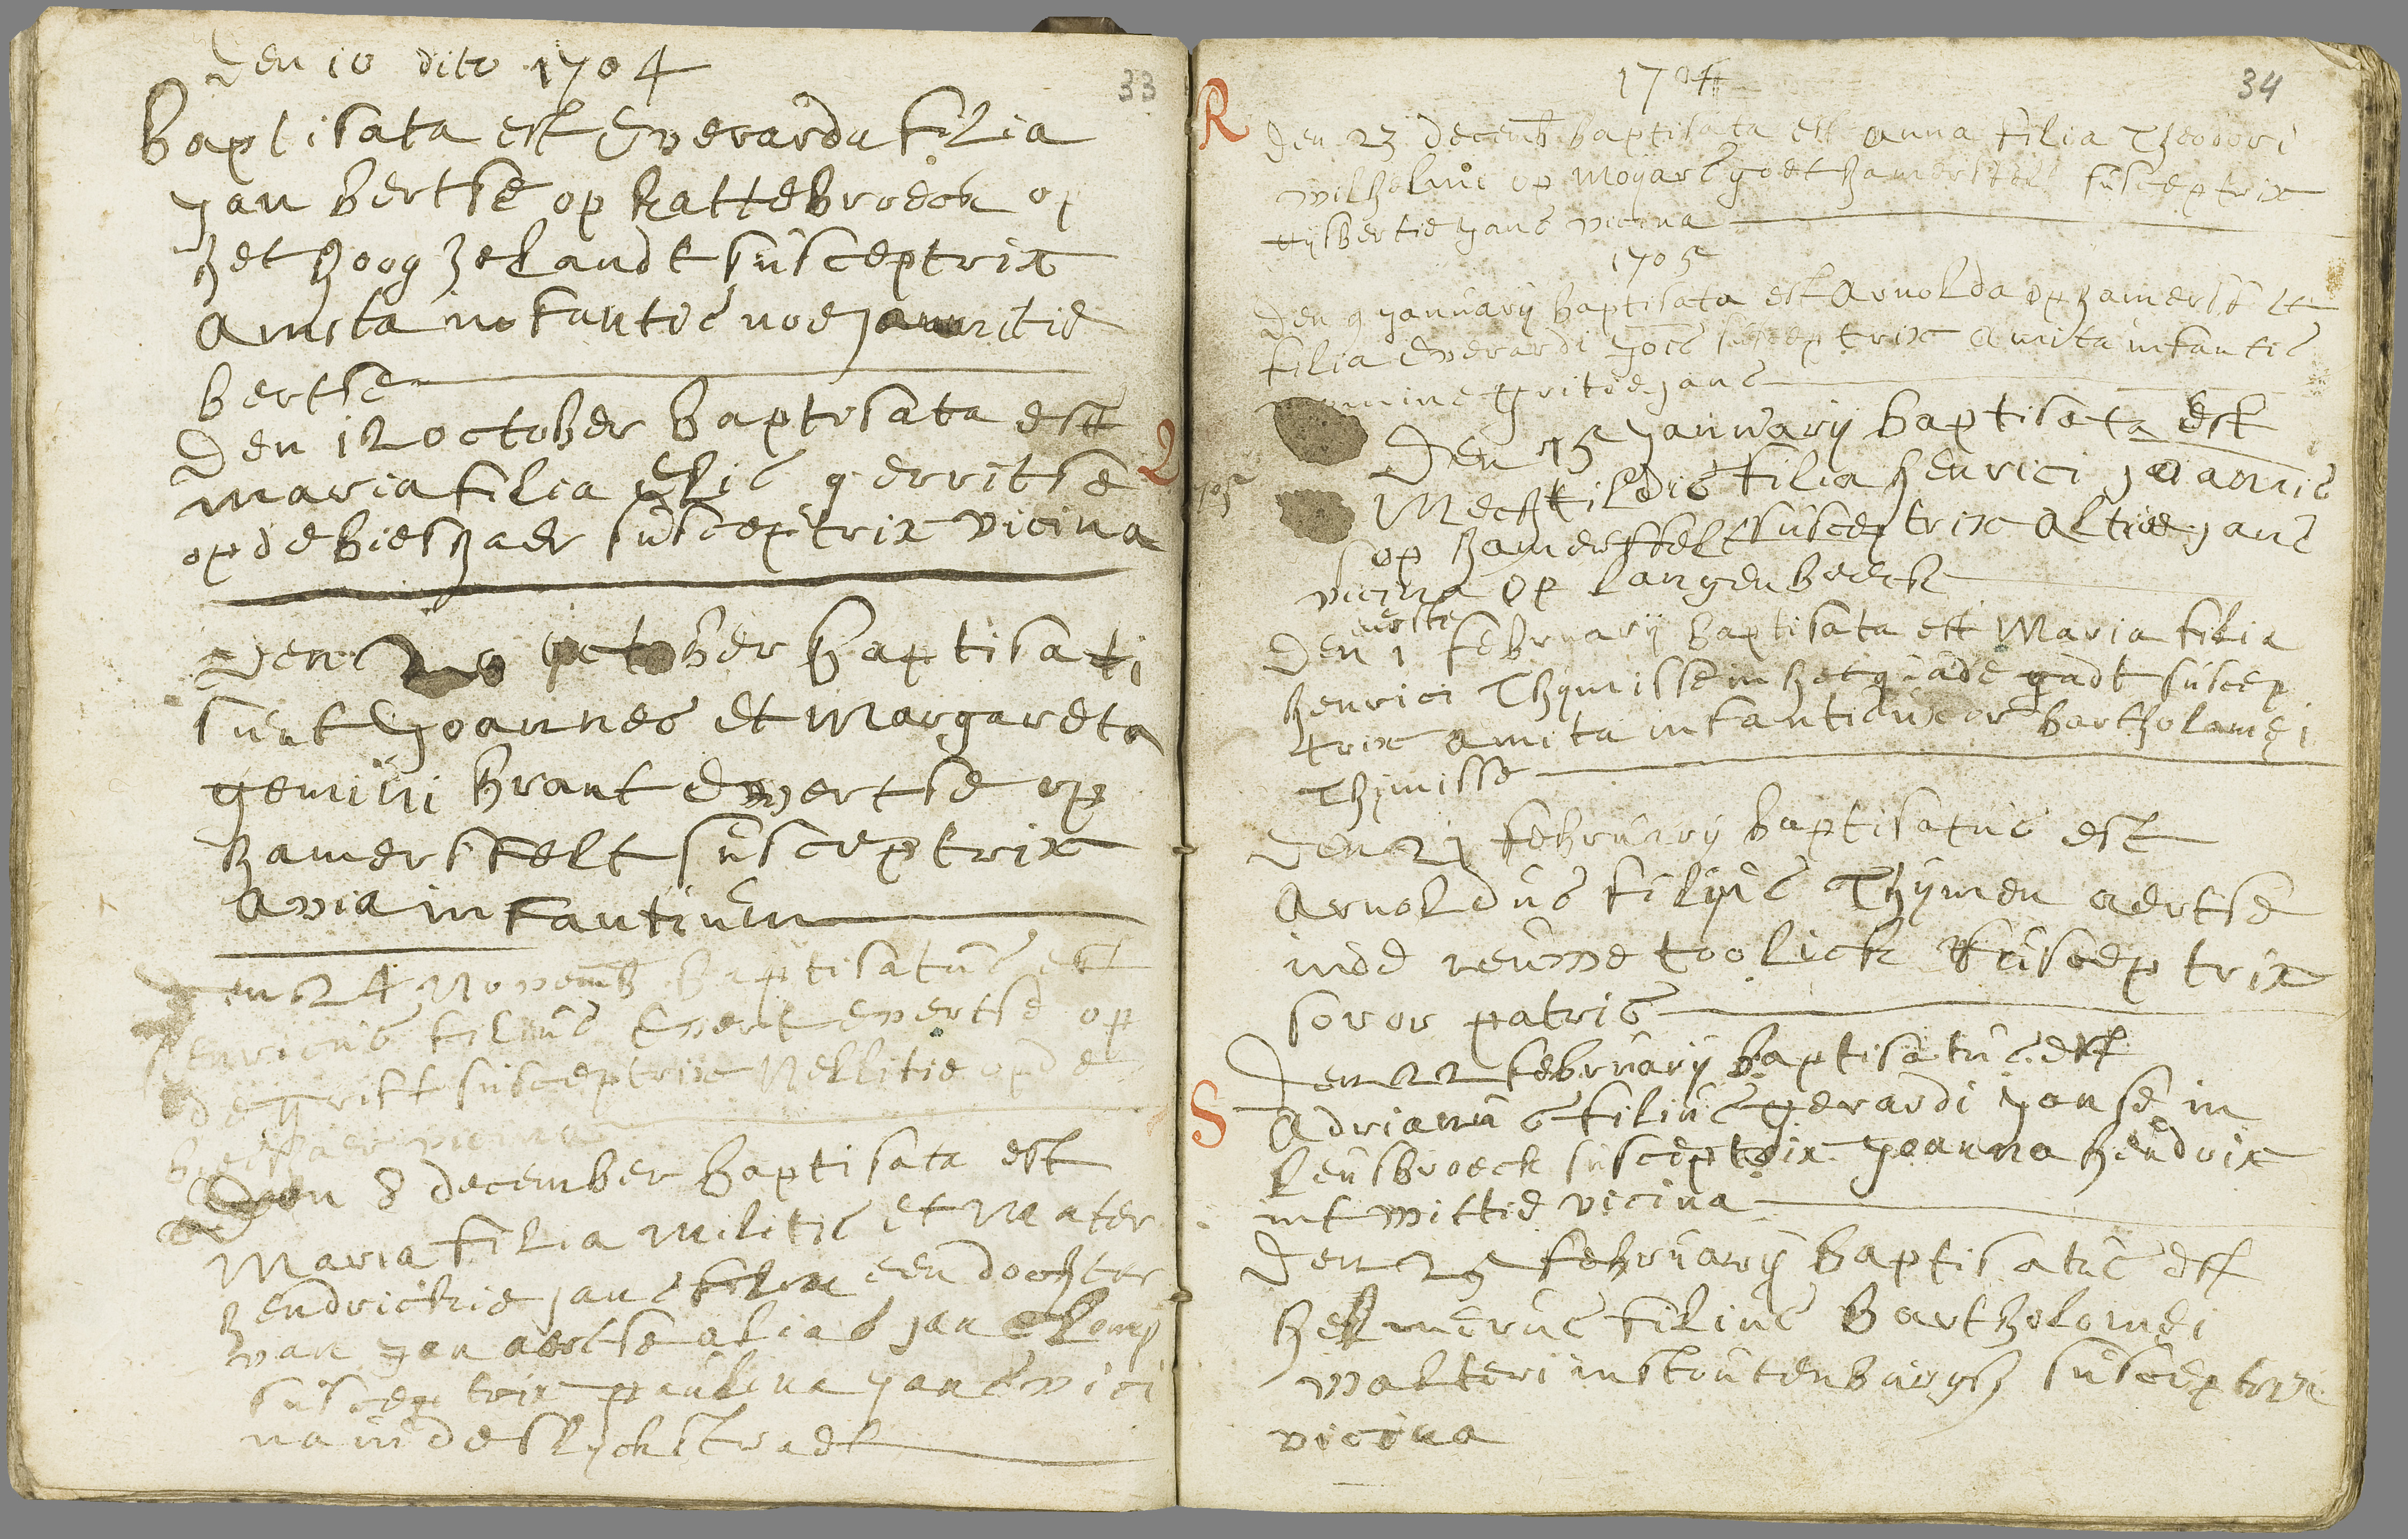 den 10 dito 1704
33
baptisata est Everarda filia
Jan bertse op kattebroeck op
het hoog helandt susceptrix
amita infantis
bertse
den 12 october baptisata est
maria filia Elis gerritse
op de bieshaer susceptrix vicina
Q
den 20 october baptisati
sunt Joannes et Margareta
gemini brant Evertse op
hamersfelt susceptrix
avia infantium
den 24 Novemb baptisatus est
henricus filius Evert evertse op
de grift susceptrix Nellitie op de
vicina
den 8 december baptisata est
Maria filia militis et Mater
hendrickie jans een dochter
van jan aertse alias jan Clomp
susceptrix paulina jans vici
na in de slyckstraet
1704
34
R
den 23 decemb baptisata est anna filia Theodori
wilhelmi op Moyars goet hamersfelt susceptrix
gijsbertie jans vicina
1705
den 9 january baptisata est Arnolda op hamersfelt
filia Everardi Jois susceptrix amita infantis
nomine gritie jans
1705
den 15 january baptisata est
Mechtildis filia henrici joannis
op hamersfelt susceptrix altie jans
vicina op langenbeeck
eerste
den 1 february baptisata est Maria filia
henrici Thymisse in het quade gadt suscep
trix amita infantis uxor bartholomei
Thymisse
den 21 february baptisatus est
Arnoldus filius Thymen aertse
in de neuwe toolick susceptrix
soror patris
den 22 february baptisatus est
S
Adrianus filius gerardi janse in
leusbroeck susceptrix joanna hendrix
int wittie vicina
den 25 february baptisatus est
helmerus filius Bartholomei
walteri in stoutenburgh susceptrix
vicina